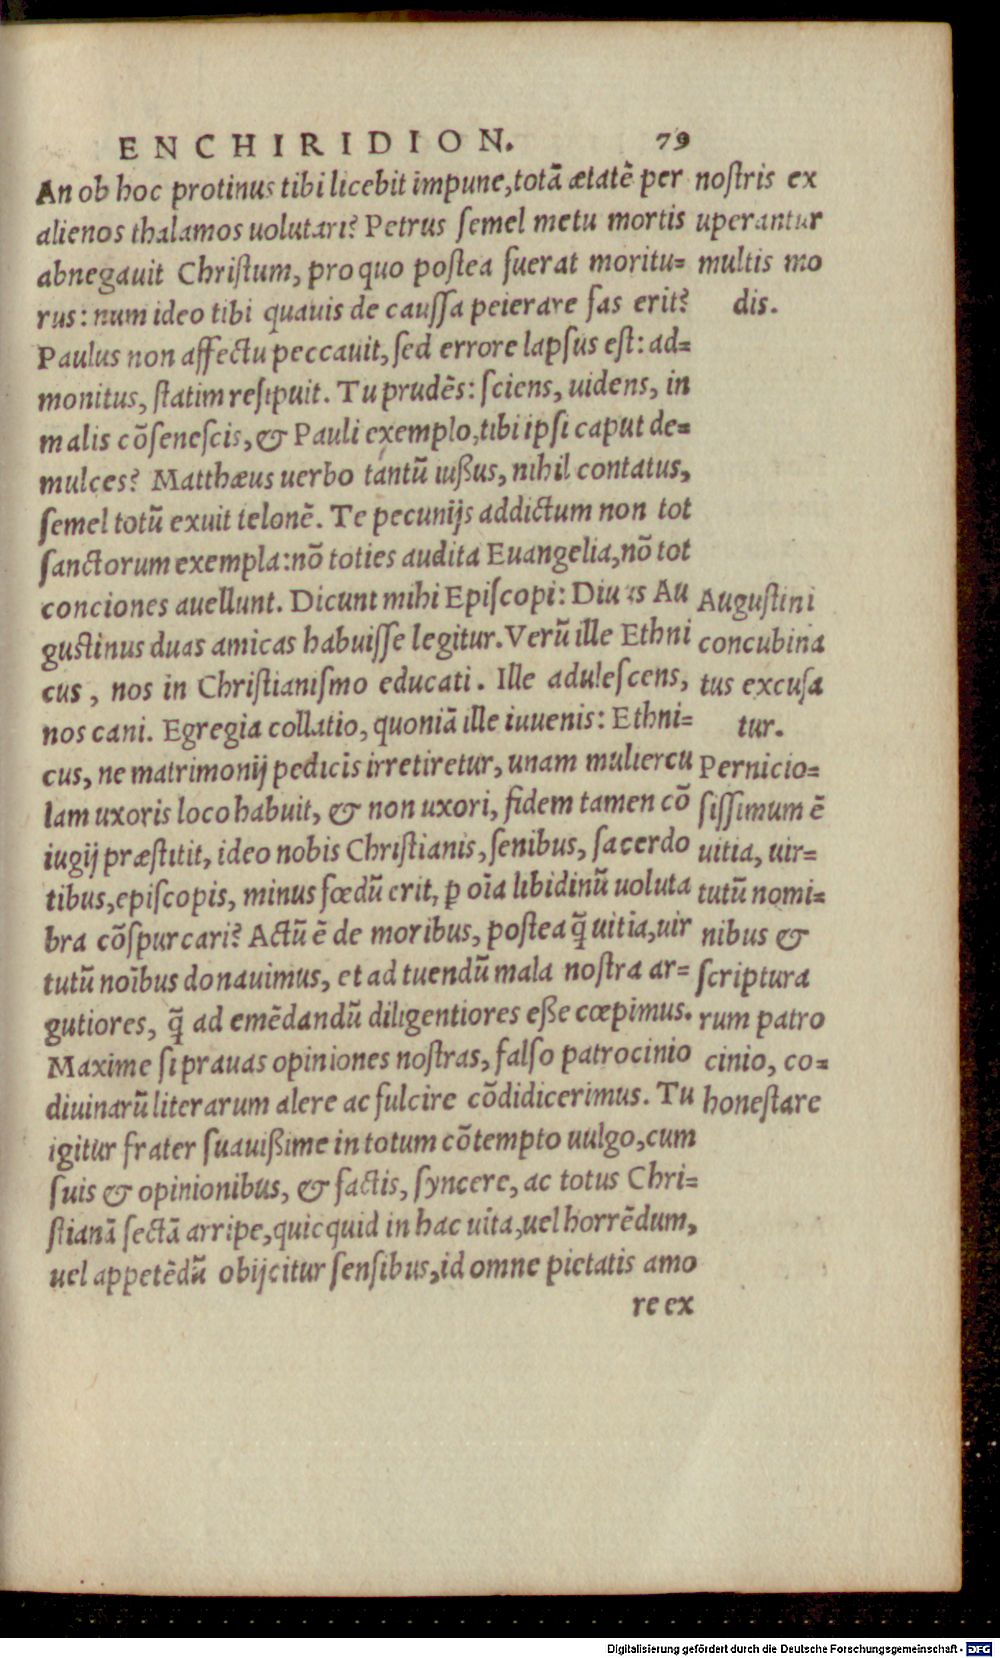 ENCHIRIDION. 79
An ob hoc protinus tibi licebit impune, totā ætatē per
alienos thalamos uolutari? Petrus ſemel metu mortis
abnegauit Chriſtum, pro quo poſtea fuerat moritu=
rus: num ideo tibi quauis de cauſſa peierare fas erit?
Paulus non affectu peccauit, ſed errore lapſus eſt: ad=
monitus, ſtatim reſipuit. Tu prudēs: ſciens, uidens, in
malis cōſeneſcis, & Pauli exemplo, tibi ipſi caput de=
mulces? Matthæus uerbo tantū iußus, nihil contatus,
ſemel totū exuit telonē. Te pecunijs addictum non tot
ſanctorum exempla: nō toties audita Euangelia, nō tot
conciones auellunt. Dicunt mihi Epiſcopi: Diuus Au
guſtinus duas amicas habuiſſe legitur. Verū ille Ethni
cus, nos in Chriſtianiſmo educati. Ille aduleſcens,
nos cani. Egregia collatio, quoniā ille iuuenis: Ethni=
cus, ne matrimonij pedicis irretiretur, unam muliercu
lam uxoris loco habuit, & non uxori, fidem tamen cō
iugij præſtitit, ideo nobis Chriſtianis, ſenibus, ſacerdo
tibus, epiſcopis, minus fœdū erit, ꝑ oīa libidinū uoluta
bra cōſpurcari? Actū ē de moribus, poſtea q̄ uitia, uir
tutū noībus donauimus, et ad tuendū mala noſtra ar=
gutiores, q̄ ad emēdandū diligentiores eße cœpimus.
Maxime ſi prauas opiniones noſtras, falſo patrocinio
diuinarū literarum alere ac fulcire cōdidicerimus. Tu
igitur frater ſuauißime in totum cōtempto uulgo, cum
ſuis & opinionibus, & factis, ſyncere, ac totus Chri=
ſtianā ſectā arripe, quicquid in hac uita, uel horrēdum,
uel appetēdū obijcitur ſenſibus, id omne pietatis amo
re ex
noſtris ex
uperantur
multis mo
dis.
Auguſtini
concubina
tus excuſa
tur.
Pernicio=
ſiſſimum ē
uitia, uir=
tutū nomi=
nibus &
ſcriptura
rum patro
cinio, co=
honeſtare
Digitalisierung gefördert durch die Deutsche Forschungsgemeinschaft - DFG